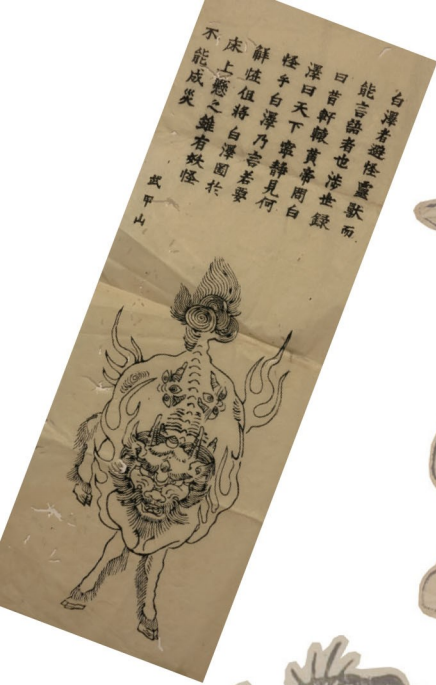 白澤者避怪靈獣而
能言語者也渉世録
曰昔軒轅黄帝問白
澤曰天下寧静見何
怪乎白澤乃言若要
鮮恠但将白澤圖於
床上懸之雖有妖怪
不能成災
武甲山